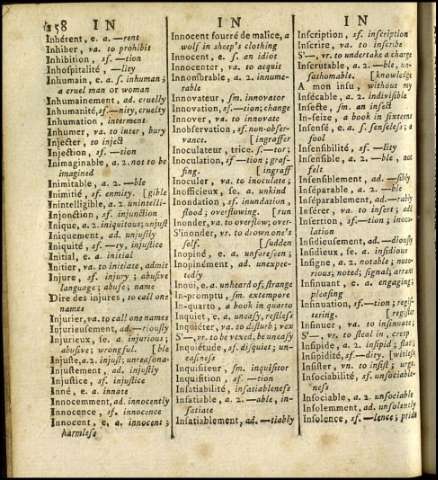 158 IN
Inhérent, e. a. —rent
Inhiber, va. to prohibit
Inhibition, sf. —tion
Inhospitalité, —lity
Inhumain, e. a. ſ. inhuman; a
cruel man or woman
Inhumainement, ad. cruelly
Inhumanité, sf. —nity, cruelty
Inhumation, interment
Inhumer, va. to inter, bury
Injecter, to injeƈt
Injection, sf. —tion
Inimaginable, a. 2. not to be
imagined
Inimitable, a. 2. —ble
Inimitié, sf. enmity. [gible
Inintelligible, a. 2. unintelli-
Injonƈtion, sf. injunƈtion
Inique, a. 2. iniquitous, unjuſt
Iniquement, ad. unjuſtly
Iniquité, sf. —ty, injuſtice
Initial, e. a. initial
Initier, va. to initiate, admit
Injure, sf. injury; abuſive
language; abuſe; name
Dire des injures, to call one
names
Injurier, va. to call one names
Injurieuſement, ad. —riouſly
Injurieux, ſe. a. injurious;
abuſive; wrongful. [ble
Injuſte, a. 2. injuſt; unreaſona-
Injuſtement, ad. injuſtly
Injuſtice, sf. injuſtice
Inné, e. a. innate
Innocemment, ad. innocently
Innocence, sf. innocence
Innocent, e. a. innocent;
harmleſs
IN
Innocent fourré de malice, a
wolf in ſheep's clothing
Innocent, e. ſ. an idiot
Innocenter, va. to acquit
Innombrable, a. 2. innume-
rable
Innovateur, ſm. innovator
Innovation, sf. —tion; change
Innover, va. to innovate
Inobſervation, sf. non-obſer-
vance. [ingraffer
Inoculateur, trice. ſ. —tor;
Inoculation, sf —tion; graf-
fing. [ingraff
Inoculer, va. to inoculate;
Inofficieux, ſe. a. unkind
Inondation, sf. inundation,
flood; overflowing. [run
Inonder, va. to overflow; over-
S'inonder, vr. to drown one's
ſelf. [ſudden
Inopiné, e. a. unforeſeen;
Inopinément, ad. unexpec-
tedly
Inoui, e. a. unheard of, ſtrange
In-promptu, ſm. extempore
In-quarto, a book in quarto
Inquiet, e. a. uneaſy, reſtleſs
Inquiéter, va. to diſturb; vex
S'—, vr. to be vexed, be uneaſy
Inquiétude, sf. diſquiet; un-
eaſineſs
Inquiſiteur, ſm. inquiſitor
Inquiſition, sf. —tion
Inſatiabilité, inſatiableneſs
Inſatiable, a. 2. —able, in-
ſatiate
Inſatiablement, ad. —tiably
IN
Inſcription, sf. inſcription
Inſcrire, va. to inſcribe
S'—, vr. to undertake a charge
Inſcrutable, a. 2. —ble, un-
fathomable. [knowledge
A mon inſu, without my
Inſécable, a. 2. indiviſible
Inſeƈte, ſm. an inſeƈt
In-ſeize, a book in ſixteens
Inſenſé, e. a. ſ. ſenſeleſs; a
fool
Inſenſibilité, sf. —lity
Inſenſible, a. 2. —ble, not
felt
Inſenſiblement, ad. —ſibly
Inſéparable, a. 2. —ble
Inſéparablement, ad. —rably
Inſérer, va. to inſert; add
Inſertion, sf. —tion; inocu-
lation
Inſidieuſement, ad. —diouſly
Inſidieux, ſe. a. inſidious
Inſigne, a. 2. notable; noto-
rious; noted; ſignal; arrant
Inſinuant, e. a. engaging;
pleaſing
Inſinuation, sf. —tion; regiſ-
tering. [regiſter
Inſinuer, va. to inſinuate;
S'—, vr. to ſteal in, creep
Inſipide, a. 2. inſipid; flat;
Inſipidité, sf. —dity. [witleſs
Inſiſter, vn. to inſiſt; urge
Inſociabilité, sf. unſociable-
neſs
Inſociable, a. 2. unſociable
Inſolemment, ad. inſolently
Inſolence, sf. —lence; pride